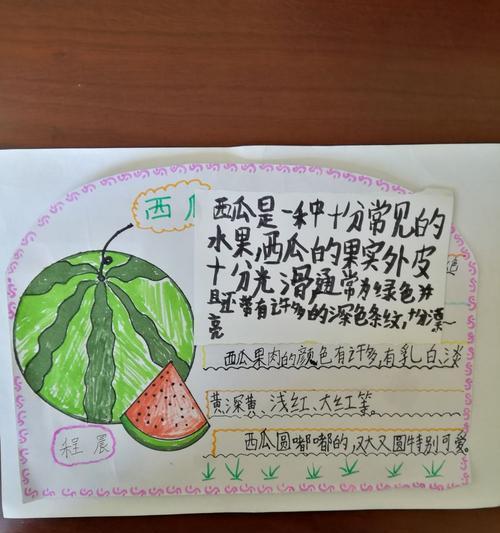 西瓜
西瓜是一种十分常见的
水果,西瓜的果实外皮
十分光滑通常为绿色并
且还带有许多的深色条纹,十分漂
亮
西瓜果肉的颜色有许多,有乳白、淡
黄深黄、浅红、大红等。
西瓜圆嘟嘟的,又大又圆特别可爱。
程晨